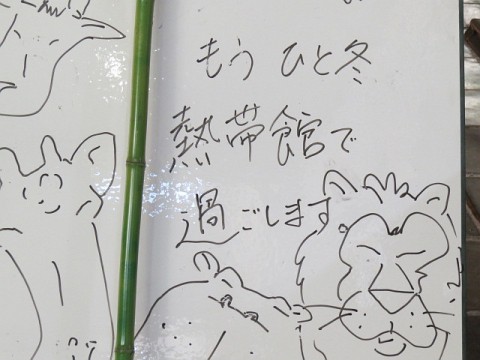 もう ひと冬
熱帯館で
過ごします。